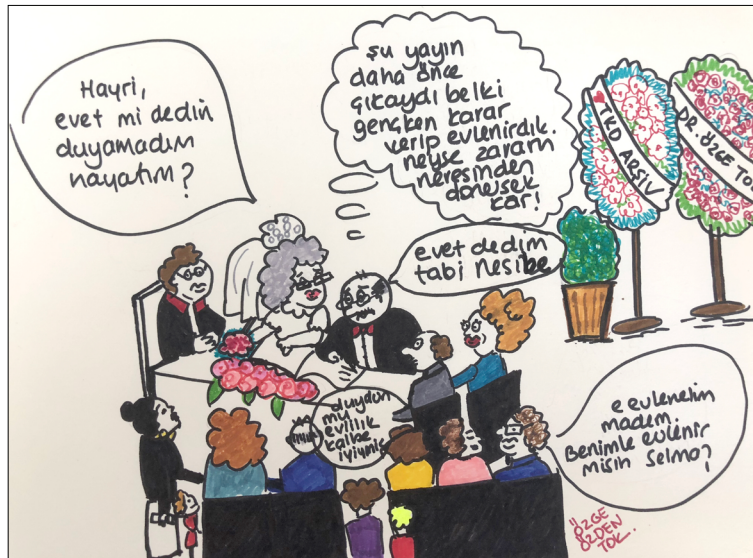 Hayri,
evet mi dedin
duyamadım
hayatım?
şu yayın
daha önce
çıkaydı belki
gençken karar
verip evlenirdik.
neyse zararın
neresinden
dönersek
kar!
evet dedim
tabi Nesibe
TKD ARŞİV
DR. ÖZGE TOK
duydun
mu
evlilik
kalbe
iyiymiş
e evlenelim
madem.
Benimle evlenir
misin Selma?
ÖZGE
ÖZDEN
TOK.